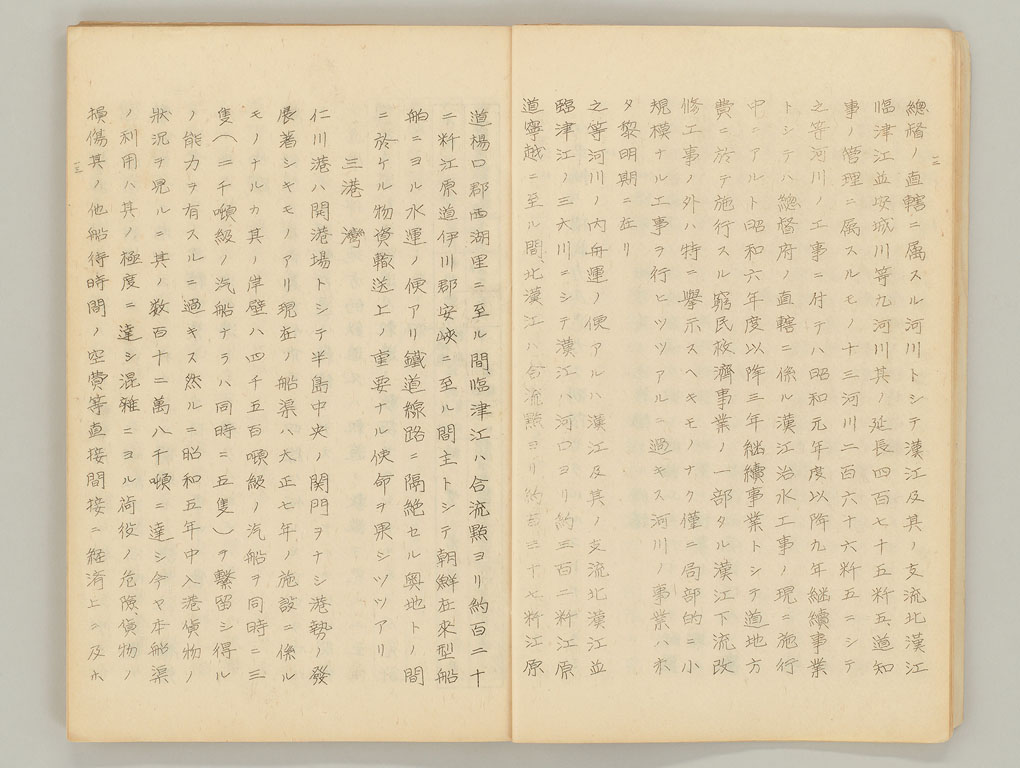 一二
總督ノ直轄ニ属スル河川トシテ漢江及其ノ支流北漢江
臨津江並安城川等九河川其ノ延長四百七十五粁五道知
事ノ管理ニ属スルモノ十三河川二百六十六粁五ニシテ
之等河川ノ工事ニ付テハ昭和元年度以降九年継續事業
トシテハ總督府ノ直轄ニ係ル漢江治水工事ノ現ニ施行
中ニアルト昭和六年度以降三年継續事業トシテ道地方
費ニ於テ施行スル窮民救濟事業ノ一部タル漢江下流改
修工事ノ外ハ特ニ擧示スヘキモノナク僅ニ局部的ニ小
規模ナル工事ヲ行ヒツツアルニ過キス河川ノ事業ハ木
タ黎明期ニ在リ
之等河川ノ内舟運ノ便アルハ漢江及其ノ支流北漢江並
臨津江ノ三大川ニシテ漢江ハ河口ヨリ約三百二粁江原
道寧越ニ至ル間北漢江ハ合流點ヨリ約百三十七粁江原
道楊口郡西湖里ニ至ル間臨津江ハ合流點ヨリ約百二十
二粁江原道伊川郡安峽ニ至ル間主トシテ朝鮮在來型船
舶ニヨル水運ノ便アリ鐵道線路ニ隔絶セル奥地トノ間
ニ於ケル物資輸送上重要ナル使命ヲ果シツツアリ
三港灣
仁川港ハ開港場トシテ半島中央ノ関門ヲナシ港勢ノ發
展著シキモノアリ現在ノ船渠ハ大正七年ノ施設ニ係ル
モノナルカ其ノ岸壁ハ四千五百噸級ノ汽船ヲ同時ニ三
隻(二千噸級ノ汽船ナラハ同時ニ五隻)ヲ繋留シ得ル
ノ能力ヲ有スルニ過キス然ルニ昭和五年中入港貨物ノ
狀況ヲ見ルニ其ノ数百十二萬八千噸ニ達シ今ヤ本船渠
ノ利用ハ其ノ極度ニ達シ混雜ニヨル荷役ノ危險貨物ノ
損傷其ノ他船得時間ノ空費等直接間接ニ経濟上ニ及ホ
一三